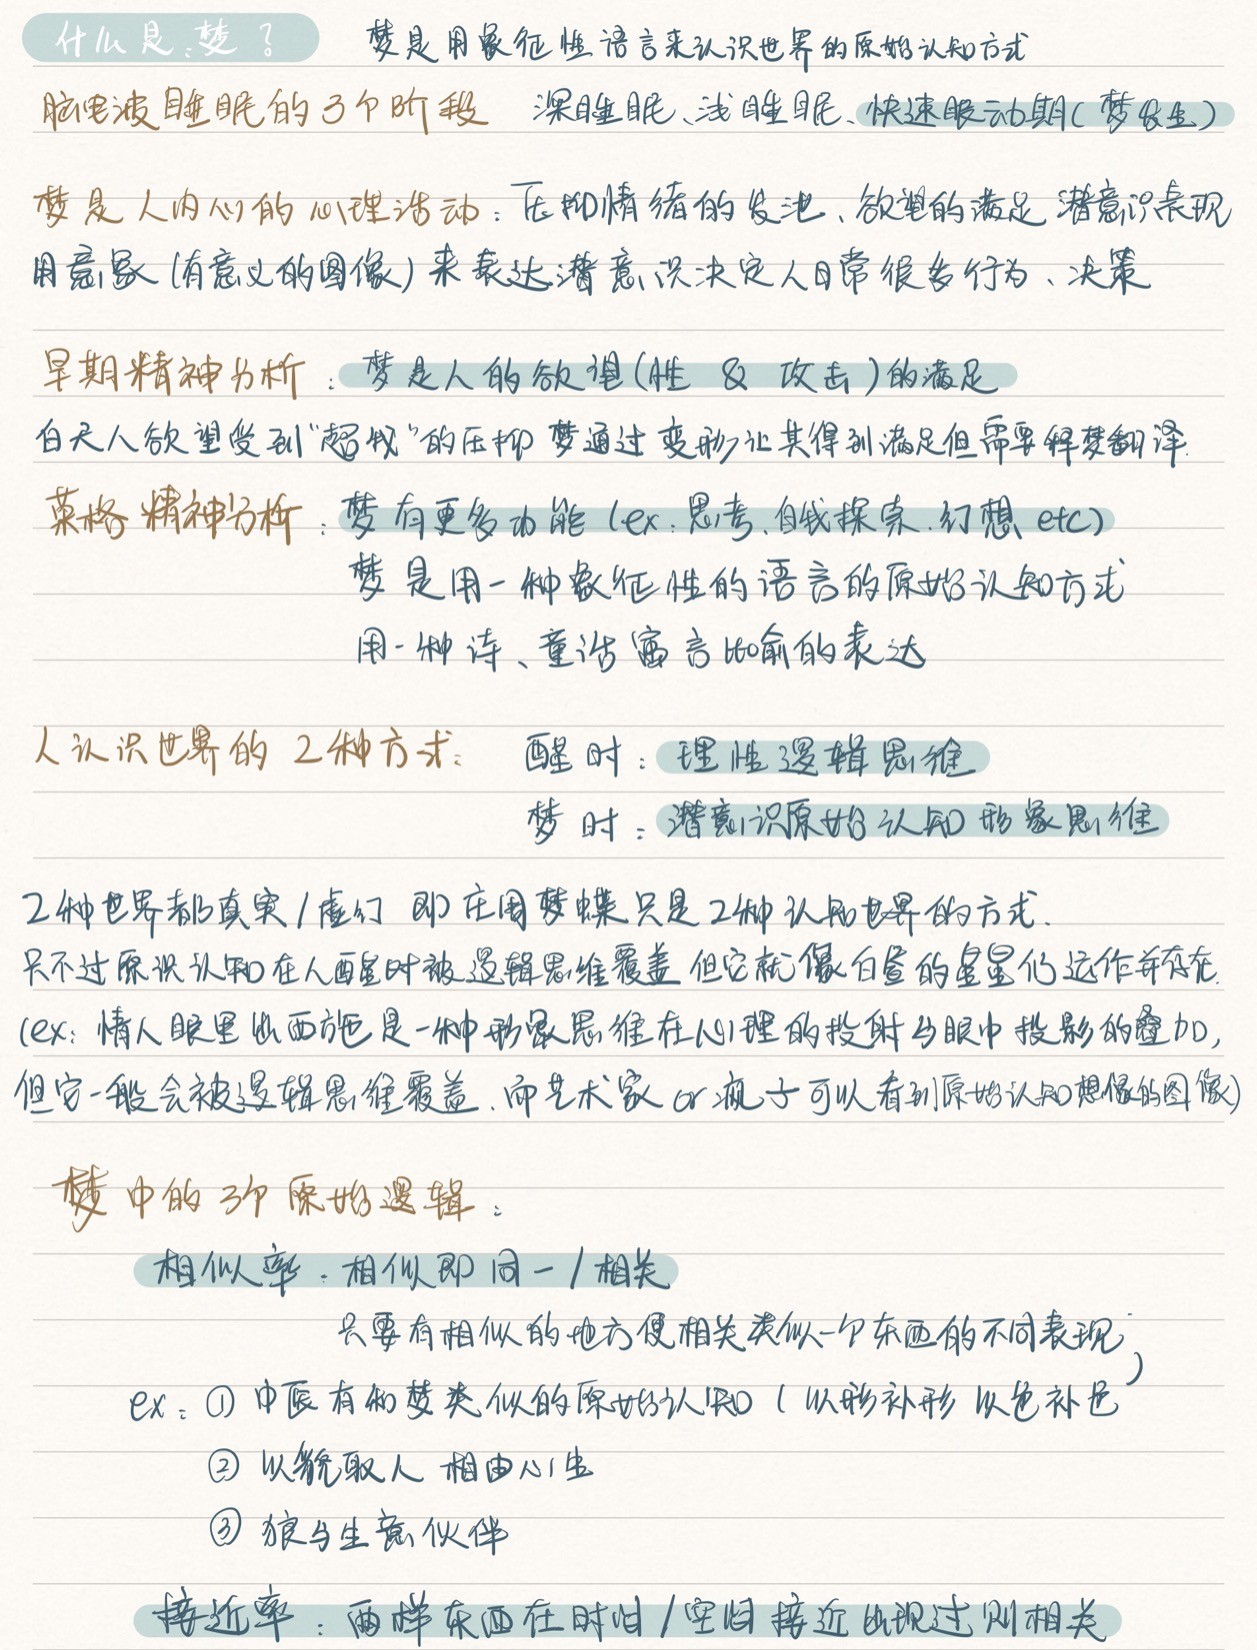 什么是梦？ 梦是用象征性语言来认识世界的原始认知方式
脑电波睡眠的3个阶段 深睡眠、浅睡眠、快速眼动期(梦发生)
梦是人内心的心理活动：压抑情绪的发泄、欲望的满足 潜意识表现
用意象(有意义的图像)来表达潜意识决定人日常很多行为、决策
早期精神分析：梦是人的欲望(性 & 攻击)的满足
白天人欲望受到"超我"的压抑 梦通过变形让其得到满足但需要释梦翻译.
荣格精神分析：梦有更多功能(ex：思考、自我探索、幻想、etc)
梦是用一种象征性的语言的原始认知方式
用一种诗、童话寓言比喻的表达
人认识世界的2种方式： 醒时：理性逻辑思维
梦时：潜意识原始认知形象思维
2种世界都真实/虚幻 即庄周梦蝶只是2种认知世界的方式.
只不过原识认知在人醒时被逻辑思维覆盖 但它就像白昼的星星仍运作并存在.
(ex：情人眼里出西施是一种形象思维在心理的投射与眼中投影的叠加,
但它一般会被逻辑思维覆盖、而艺术家or疯子可以看到原始认知想像的图像)
梦中的3个原始逻辑：
相似率：相似即同一/相关
只要有相似的地方便相关类似一个东西的不同表现
ex：① 中医有和梦类似的原始认知(以形补形 以色补色)
② 以貌取人 相由心生
③ 狼与生意伙伴
接近率：两样东西在时间/空间接近出现过则相关